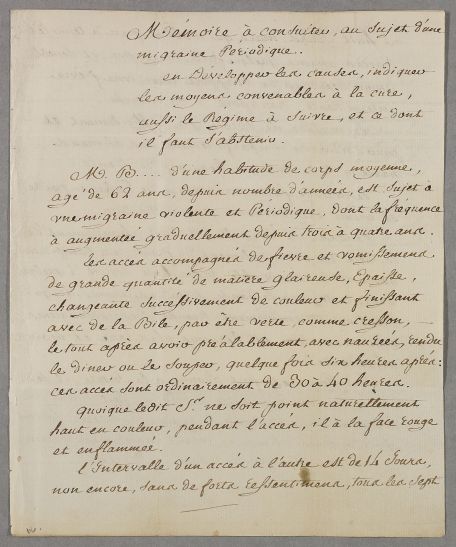 Mémoire à consulter, au Sujet d'une
migraine Périodique.
en Développer les causes, indiquer
les moyens convenables à la cure,
aussi le Régime à Suivre, et ce dont
il faut S'abstenir.
M. B.... d'une habitude de corps moyenne,
agé de 62 ans, depuis nombre d'années, est Sujet à
une migraine violente et Périodique, dont la fréquence
à augmentée graduellement depuis trois à quatre ans.
les accès accompagnés de fievre et vomissemens
de grande quantité de matière glaireuse, Epaisse,
changeante Successivement de couleur et finissant
avec de la Bile, par être verte comme cresson,
le tout après avoir préalablement, avec nausées, rendu
le diner ou le Souper, quelque fois six heures après:
ces accès sont ordinairement de 30 à 40 heures.
Quoique ledit Sr. ne Soit point naturellement
haut en couleur, pendant l'accès, il à la face rouge
et enflammée.
l'Intervalle d'un accès à l'autre est de 14 Jours,
non encore, sans de forts ressentimens, tous les Sept